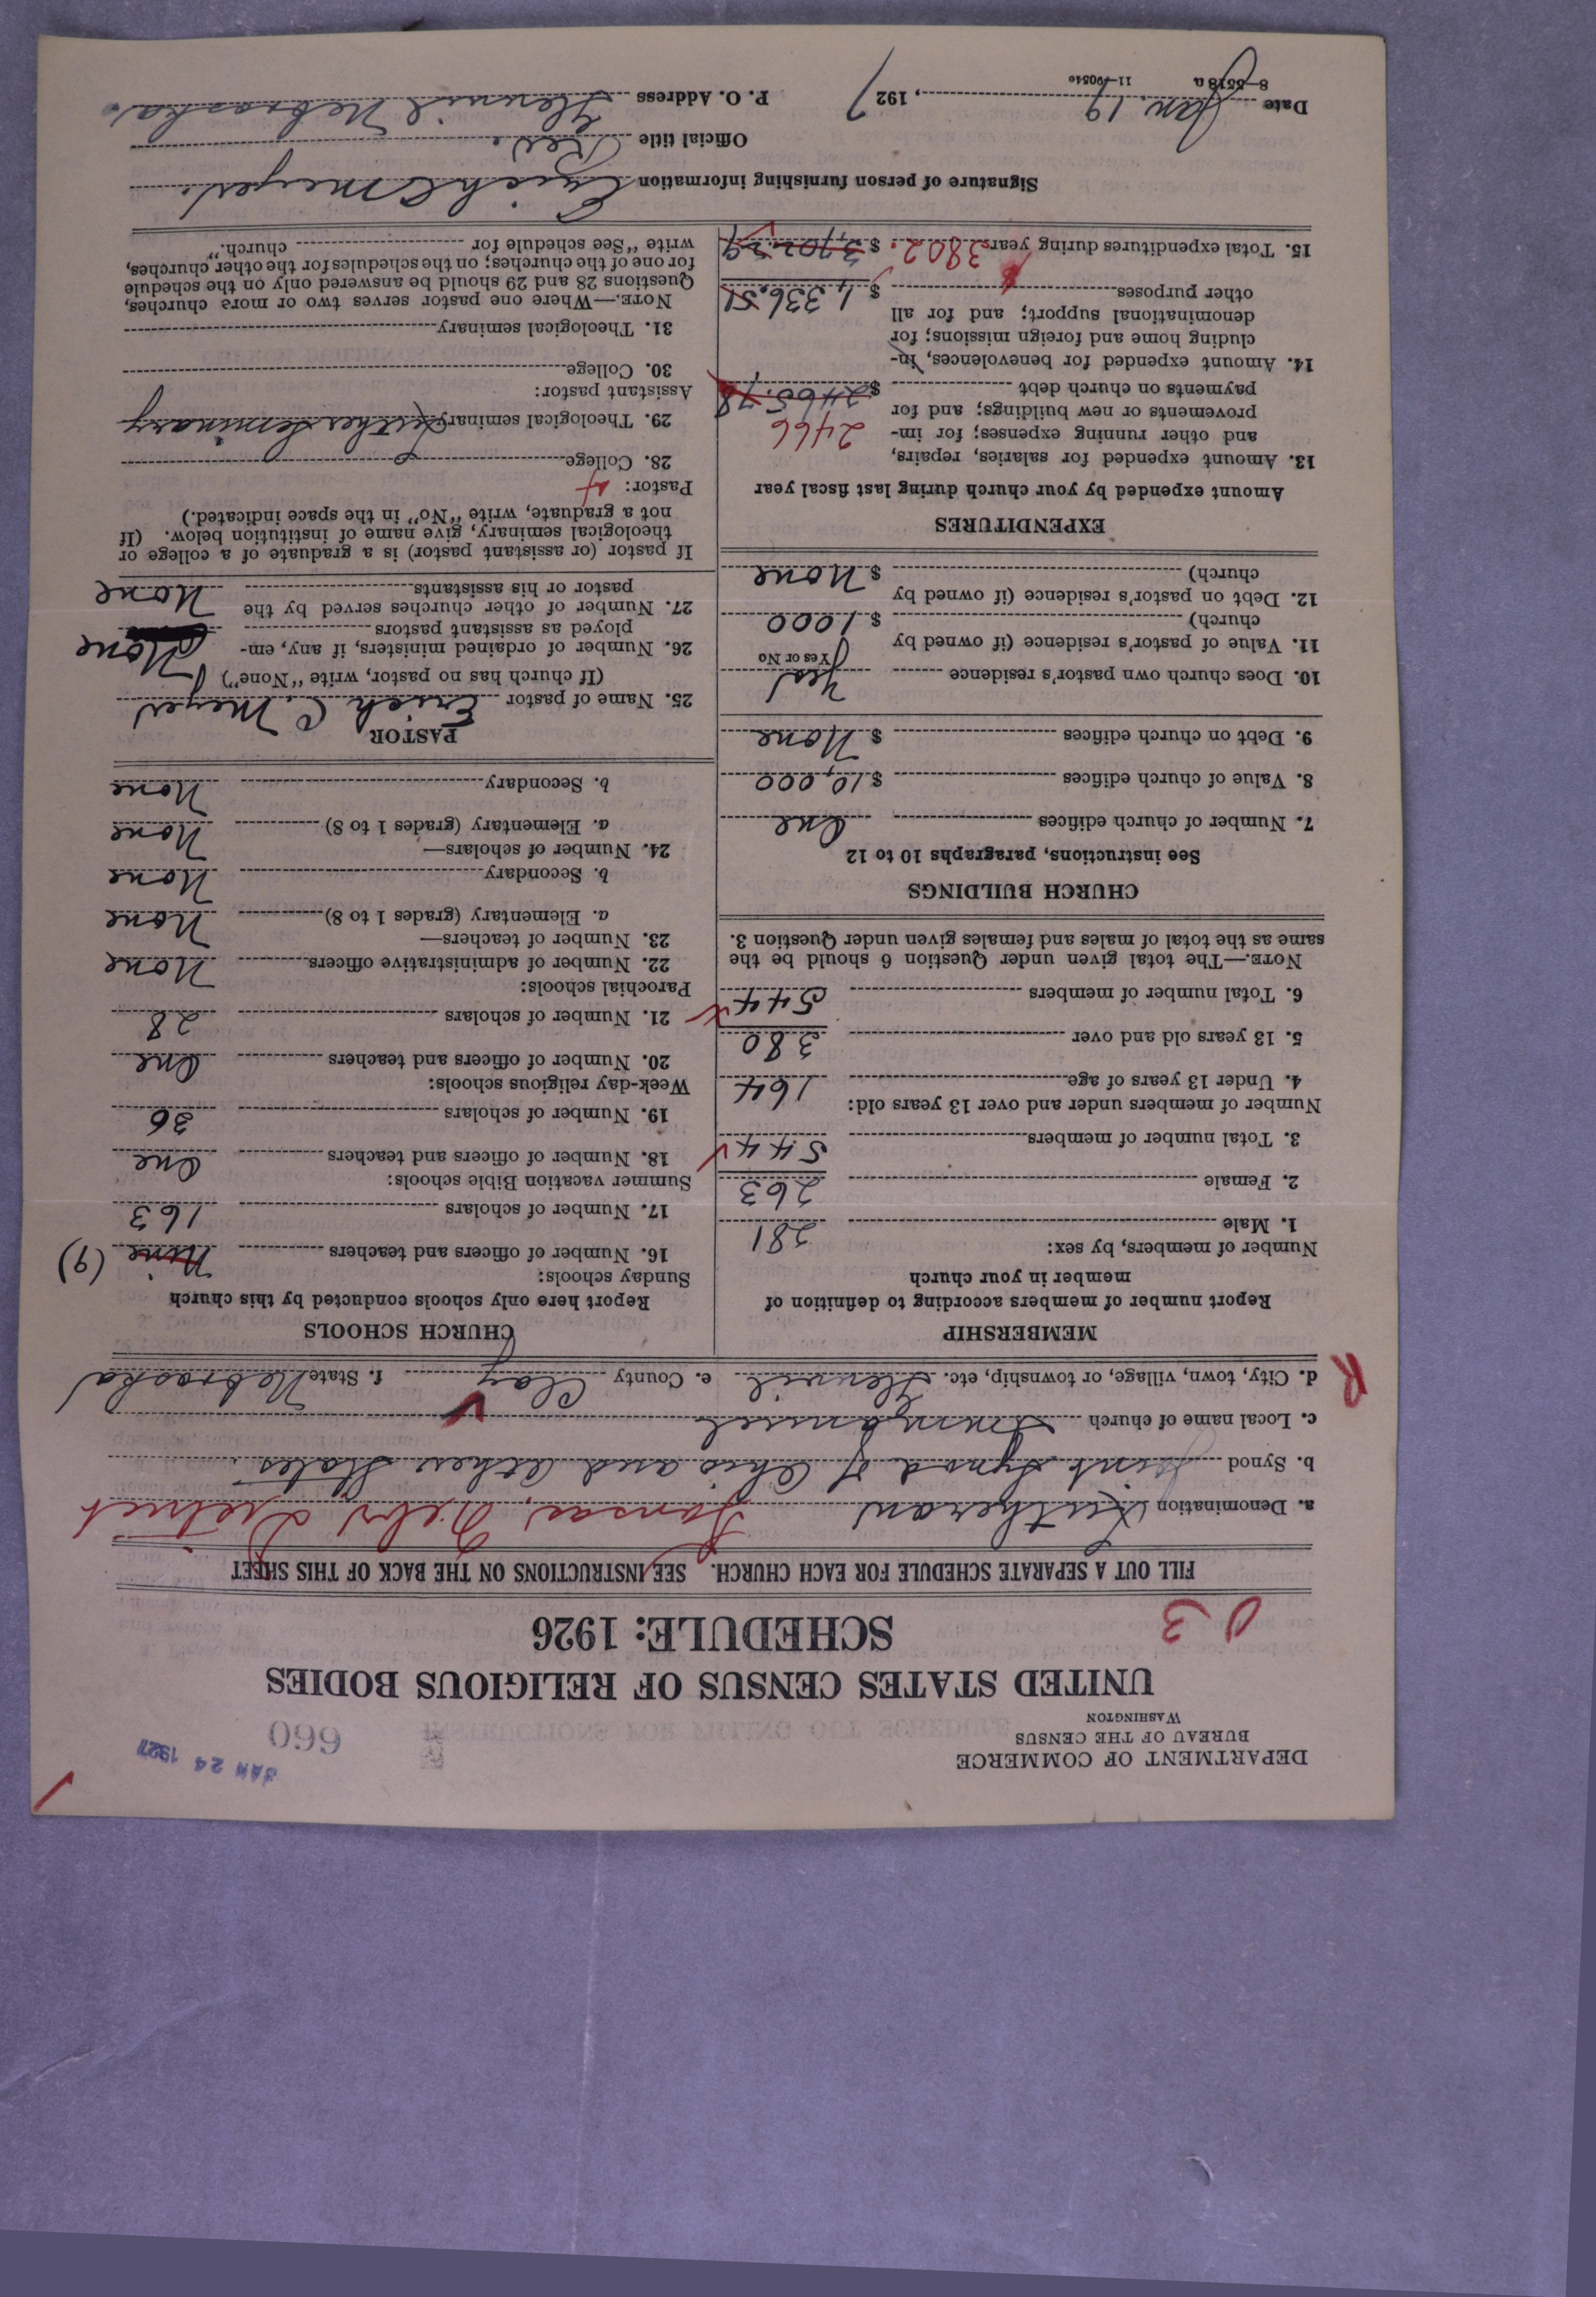 DEPARTMENT OF COMMERCE
BUREAU OF THE CENSUS
WASHINGTON
JAN 24 1927
660
UNITED STATES CENSUS OF RELIGIOUS BODIES
SCHEDULE: 1926
0 3
FILL OUT A SEPARATE SCHEDULE FOR EACH CHURCH. SEE INSTRUCTIONS ON THE BACK OF THIS SHEET
a. Denomination Lutheran Kansas, Nebr District
b. Synod Joint Synod of Ohio and Other States
c. Local name of church Immanuel
R
d. City, town, village, or township, etc. Glenvil e. County Clay f. State Nebraska
MEMBERSHIP
Report number of members according to definition of
member in your church
Number of members, by sex:
1. Male 281
2. Female 263
3. Total number of members 544
Number of members under and over 13 years old:
4. Under 13 years of age 164
5. 13 years old and over 380
6. Total number of members 544
NOTE.—The total given under Question 6 should be the
same as the total of males and females given under Question 3.
CHURCH BUILDINGS
See instructions, paragraphs 10 to 12
7. Number of church edifices One
8. Value of church edifices $10,000
9. Debt on church edifices $ None
10. Does church own pastor's residence Yes
Yes or No
11. Value of pastor's residence (if owned by
church) $ 1000
12. Debt on pastor's residence (if owned by
church) $ None
EXPENDITURES
Amount expended by your church during last fiscal year
13. Amount expended for salaries, repairs,
and other running expenses; for im-
provements or new buildings; and for
payments on church debt $ 2465.78
2466
14. Amount expended for benevolences, in-
cluding home and foreign missions; for
denominational support; and for all
other purposes $ 1,336.51
15. Total expenditures during year 3802. $ 3,702.29
CHURCH SCHOOLS
Report here only schools conducted by this church
Sunday schools:
16. Number of officers and teachers Nine (9)
17. Number of scholars 163
Summer vacation Bible schools:
18. Number of officers and teachers One
19. Number of scholars 36
Week-day religious schools:
20. Number of officers and teachers One
21. Number of scholars 28
Parochial schools:
22. Number of administrative officers None
23. Number of teachers—
a. Elementary (grades 1 to 8) None
b. Secondary None
24. Number of scholars—
a. Elementary (grades 1 to 8) None
b. Secondary None
PASTOR
25. Name of pastor Erich C. Meyer
(If church has no pastor, write "None")
26. Number of ordained ministers, if any, em-
ployed as assistant pastors None
27. Number of other churches served by the
pastor or his assistants None
If pastor (or assistant pastor) is a graduate of a college or
theological seminary, give name of institution below. (If
not a graduate, write "No" in the space indicated.)
Pastor:
28. College
29. Theological seminary Luther Seminary
Assistant pastor:
30. College
31. Theological seminary
NOTE.—Where one pastor serves two or more churches,
Questions 28 and 29 should be answered only on the schedule
for one of the churches; on the schedules for the other churches,
write "See schedule for church."
Signature of person furnishing information Erich C Meyer.
Official title Rev.
Date Jan. 19, 1927 P. O. Address Glenvil Nebraska.
8—5518a 11—9051c